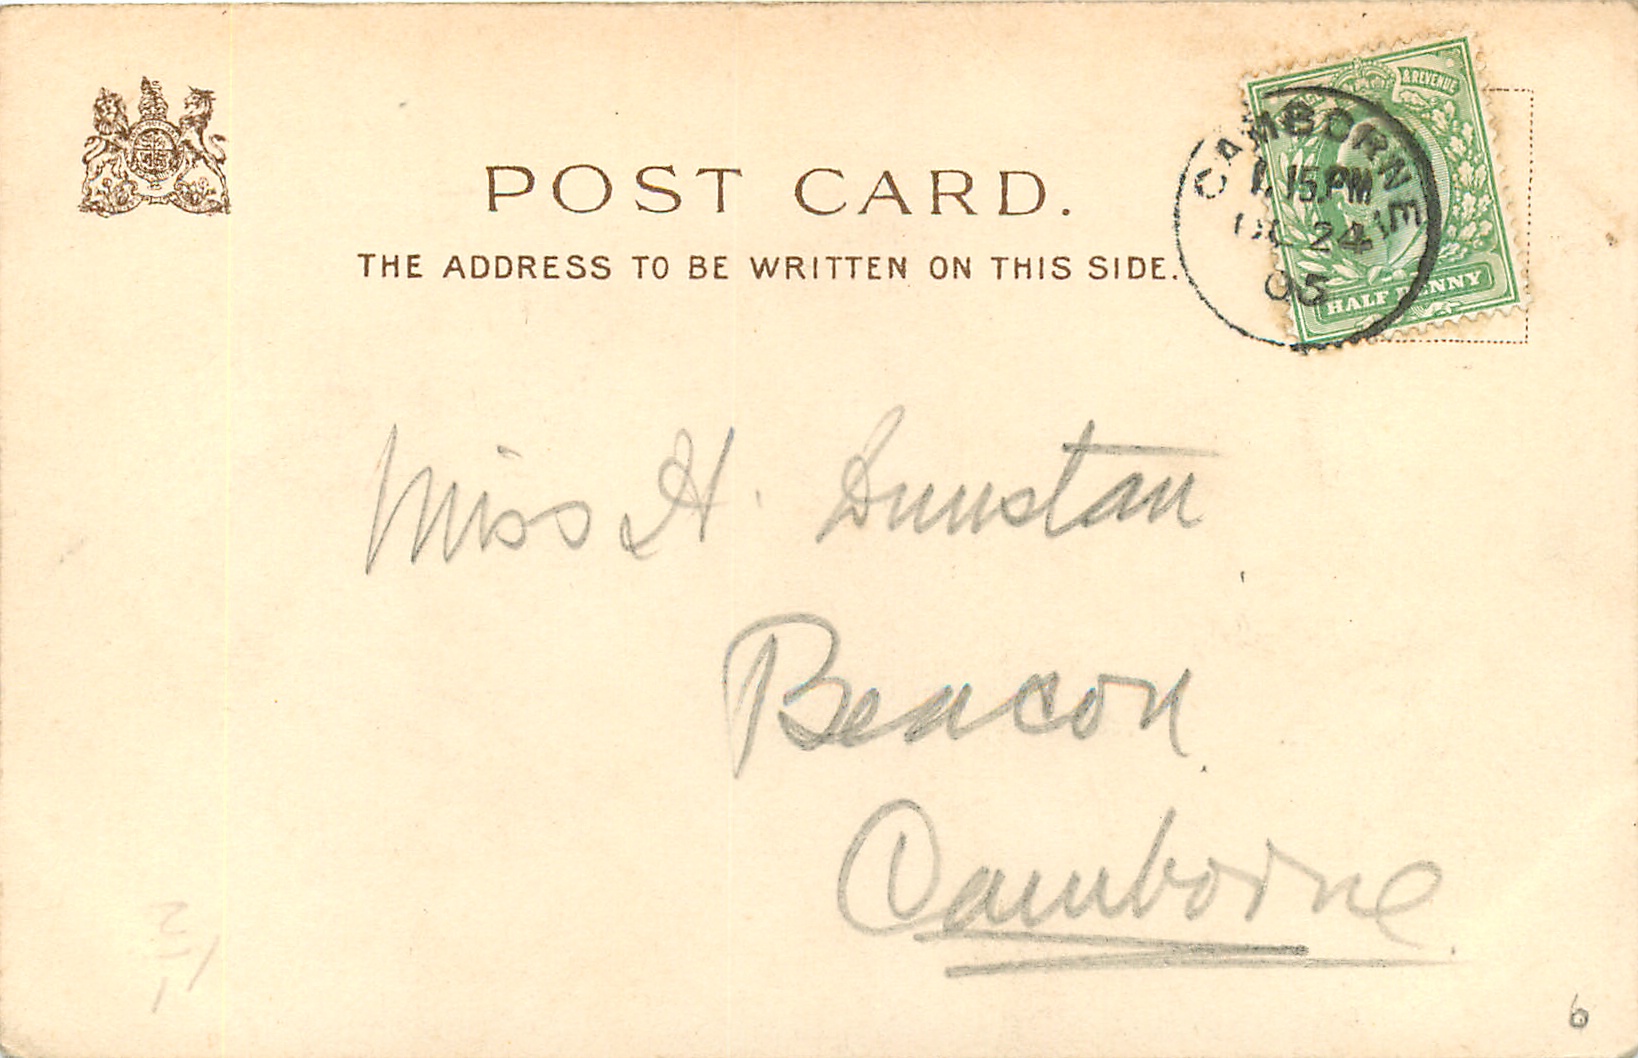 POST CARD.
THE ADDRESS TO BE WRITTEN ON THIS SIDE.
& REVENUE
HALF PENNY
CAMBORNE
1.15 PM
24
05
Miss H. Dunstan
Beacon
Camborne
6